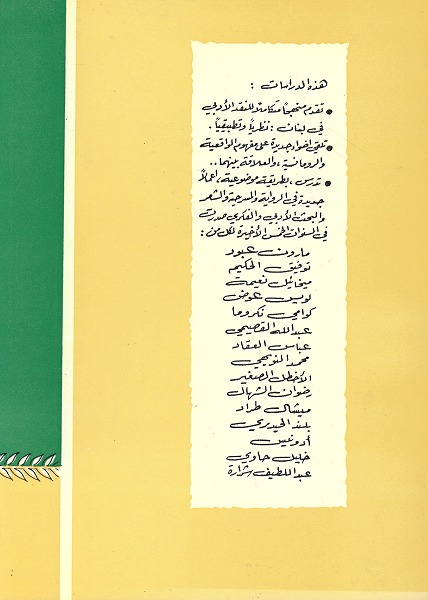 هذه الدراسات :
• تقدم منهجاً متكاملاً للنقد الأدبي
في لبنان : نظرياً وتطبيقياً .
• تلقي أضواء جديدة على مفهوم الواقعية
والرومانسية ، والعلاقة بينهما ..
• تدرس ، بطريقة موضوعية ، أعمالاً
جديدة في الرواية والمسرحية والشعر
والبحث الأدبي والفكري صدرت
في السنوات الخمس الأخيرة لكل من :
مارون عبود
توفيق الحكيم
ميخائيل نعيمة
لويس عوض
كوامي نكروما
عبدالله القصيمي
عباس العقاد
محمد النويهي
الأخطل الصغير
رضوان الشهال
ميشال طراد
بلند الحيدري
أدونيس
خليل حاوي
عبداللطيف شرارة